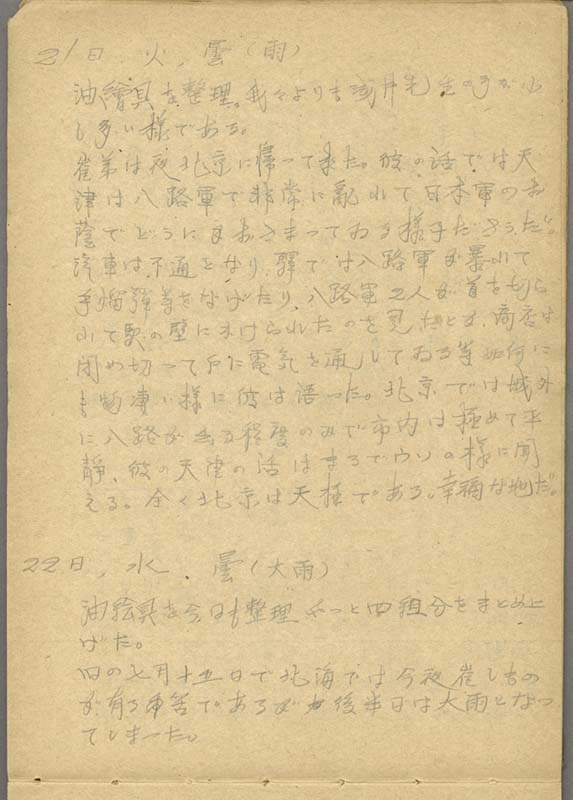 21日 火、曇(雨)
油繪具を整理。我々よりも浅井先生の手が少
し多い様である。
崔弟は夜北京に帰って来た。彼の話では天
津は八路軍で非常に亂れて日本軍のお
蔭でどうにかおさまってゐる様子ださうだ。
汽車は不通となり、驛では八路軍が暴れて
手榴彈等をなげたり、八路軍2人が首を切ら
れて驛の壁にかけられたのを見たとか、商店は
閉め切って戸に電気を通してゐる等如何に
も物凄い様に彼は語った。北京では城外
に八路が出る程度のみで市内は極めて平
靜、彼の天津の話はまるでウソの様に聞
える。全く北京は天極である。幸福な地だ。
22日、水、曇(大雨)
油絵具を今日も整理 やっと四組分をまとめ上
げた。
旧の七月十五日で北海では今夜崔しもの
が有る筈であるが後半日は大雨となっ
てしまった。